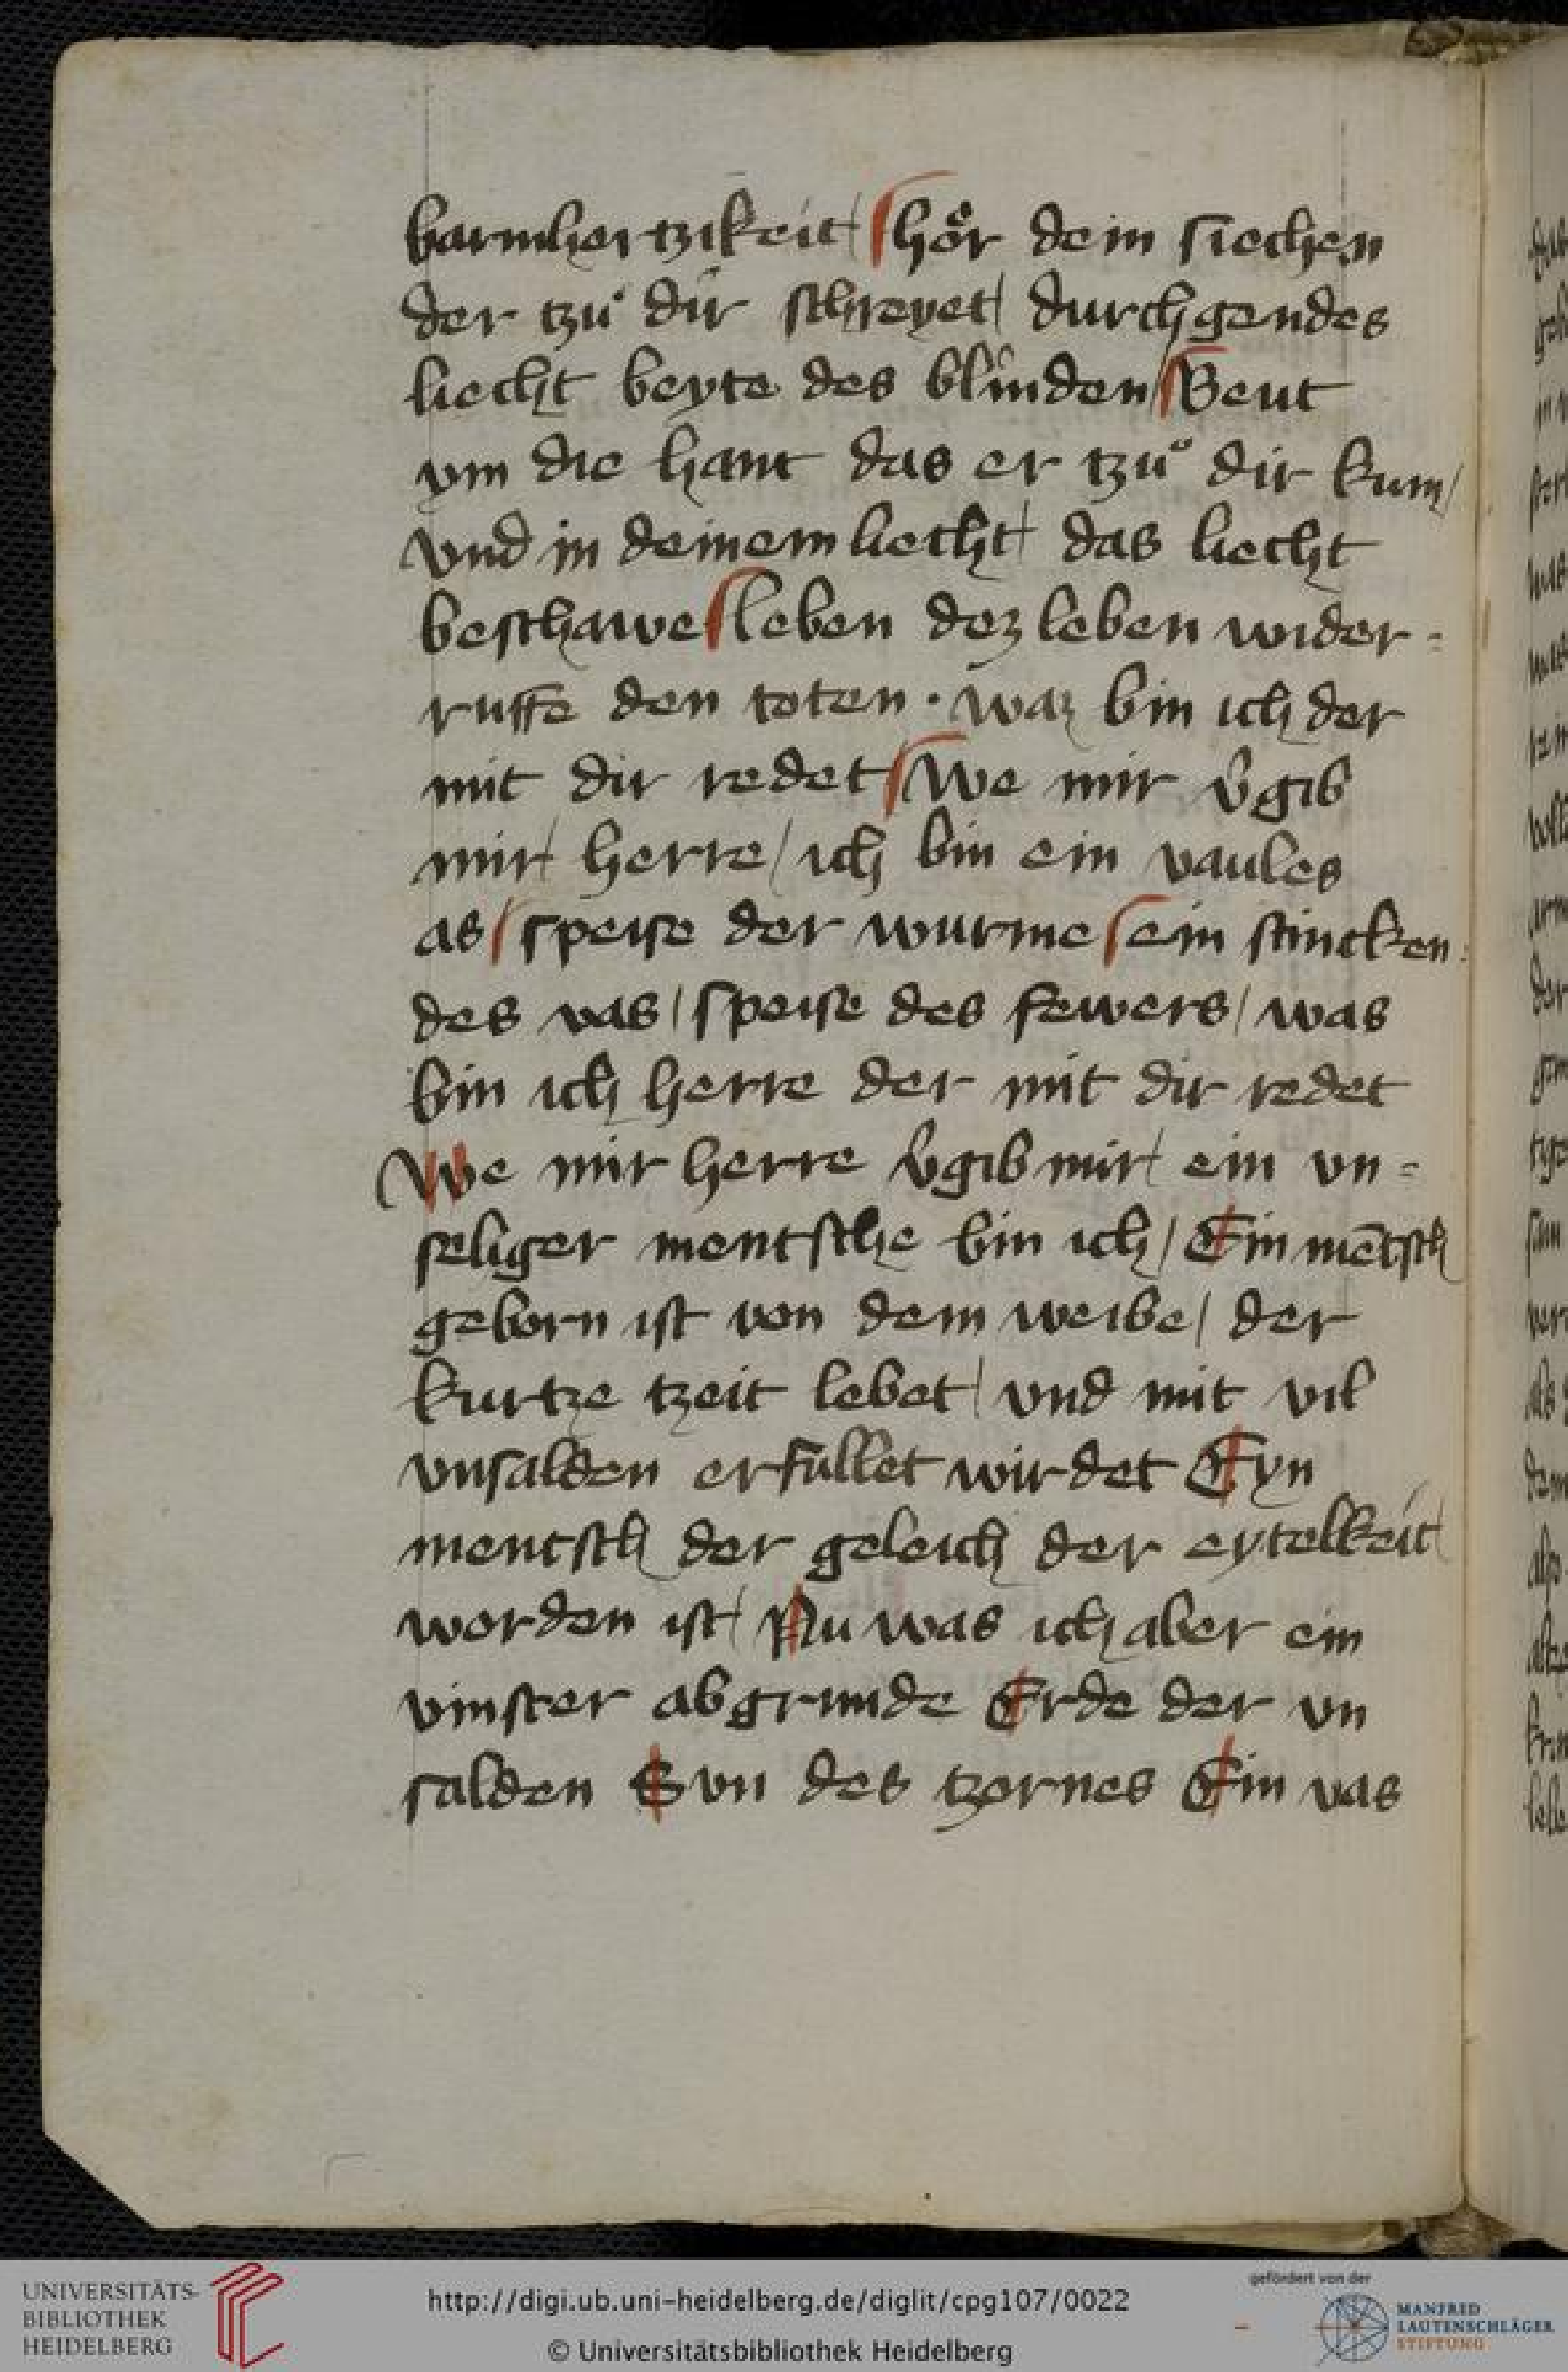 barmhertzikeit/ hoͤr dein siechen
der tzuͦ dir schreyet/ durchgendes
liecht beyte des blinden/ Beut
ym die hant das er tzuͦ dir kum/
Vnd in deinem liecht/ das liecht
beschawe leben dez leben wider-
ruffe den toten · waz bin ich der
mit dir redet We mir v̑gib
mir/ herre/ ich bin ein vaules
as/ speise der wurme ein stincken-
des vas/ speise des fewers/ was
bin ich herre der mit dir redet
We mir herre v̑gib mir/ ein vn-
seliger mentsche bin ich/ Ein mētsch
geborn ist von dem weibe/ der
kurtze tzeit lebet/ vnd mit vil
vnsalden erfullet wirdet Eyn
mentsch der geleich der eytelkeit/
worden ist/ Nu was ich aber ein
vinster abgrunde Erde der vn
salden Sun des tzornes Ein vas
UNIVERSITÄTS-
BIBLIOTHEK
HEIDELBERG
http://digi.ub.uni-heidelberg.de/diglit/cpg107/0022
© Universitätsbibliothek Heidelberg
gefördert von der
MANFRED
LAUTENSCHLÄGER
STIFTUNG